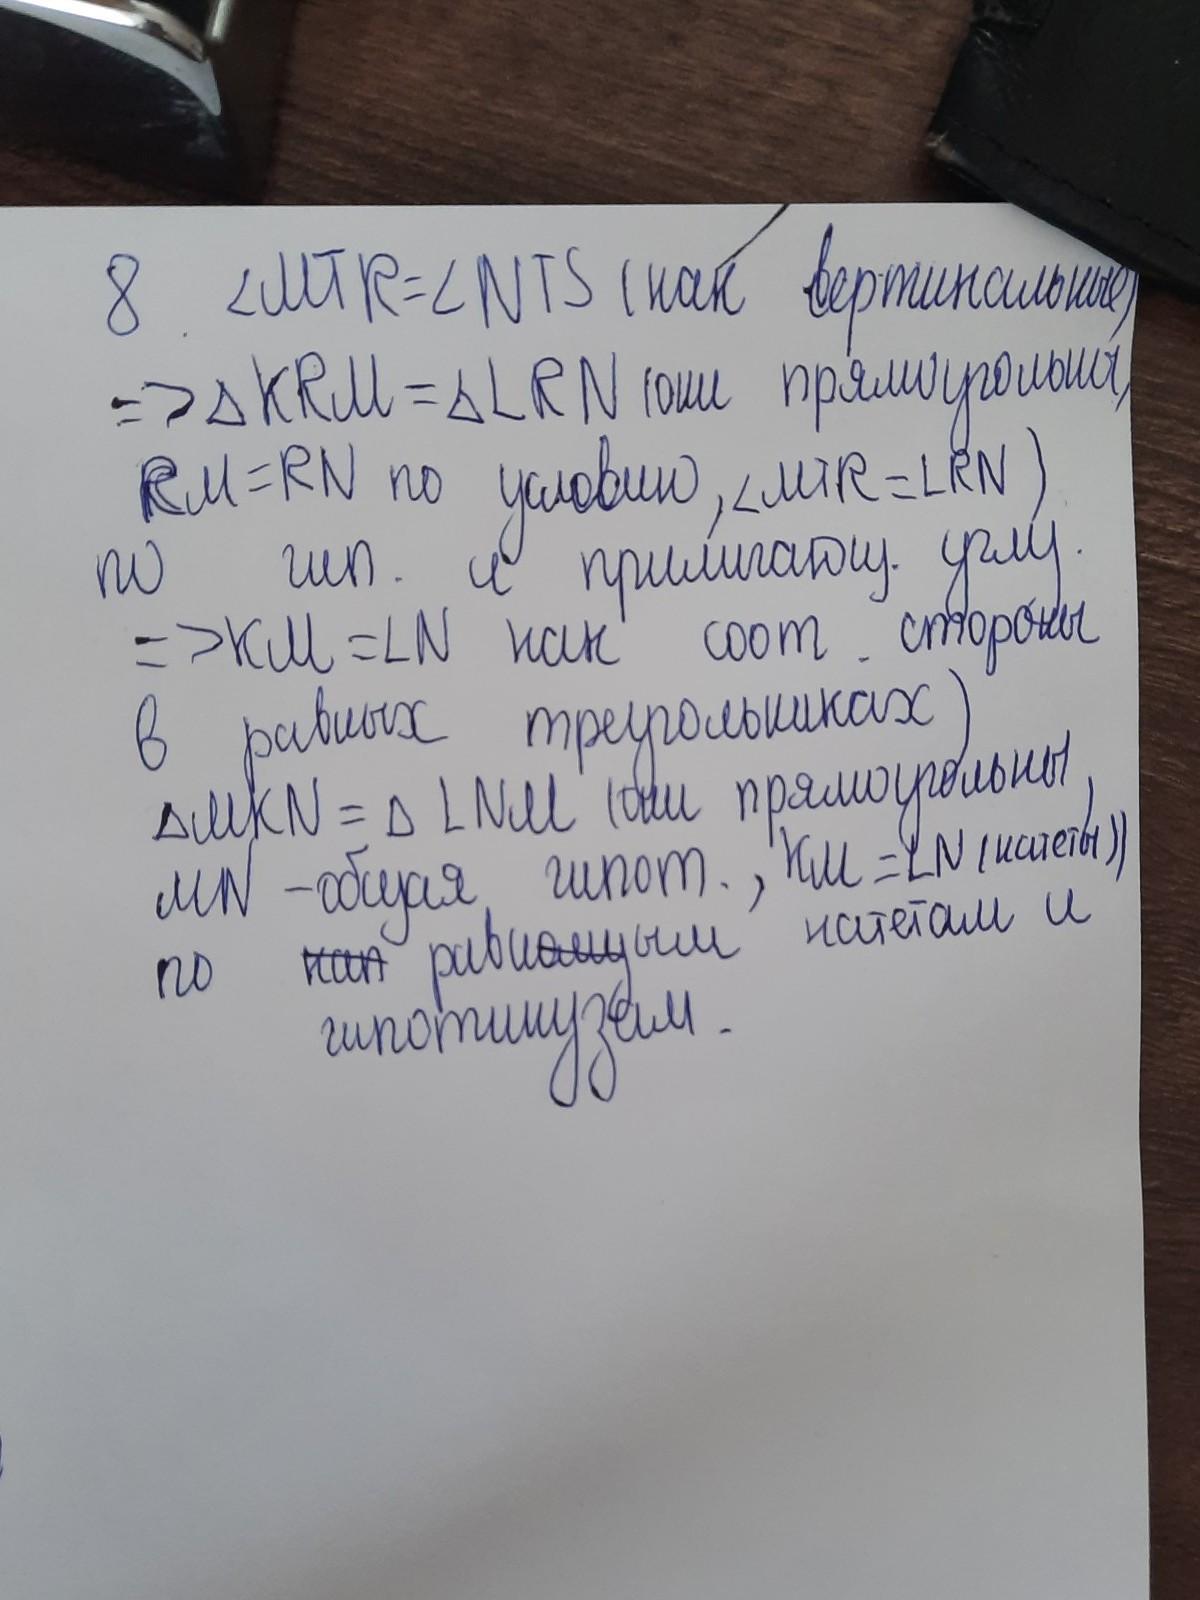 8. ∠MTR=∠NTS (как вертикальные)
=> △KRM = △LRN (они прямоугольны,
RM=RN по условию, ∠MTR=LRN)
по гип. и прилигающ. углу.
=> KM=LN как соот. стороны
в равных треугольниках)
△MKN = △LNM (они прямоугольны,
MN - общая гипот., KM=LN (катеты))
по равным катетам и
гипотинузам.